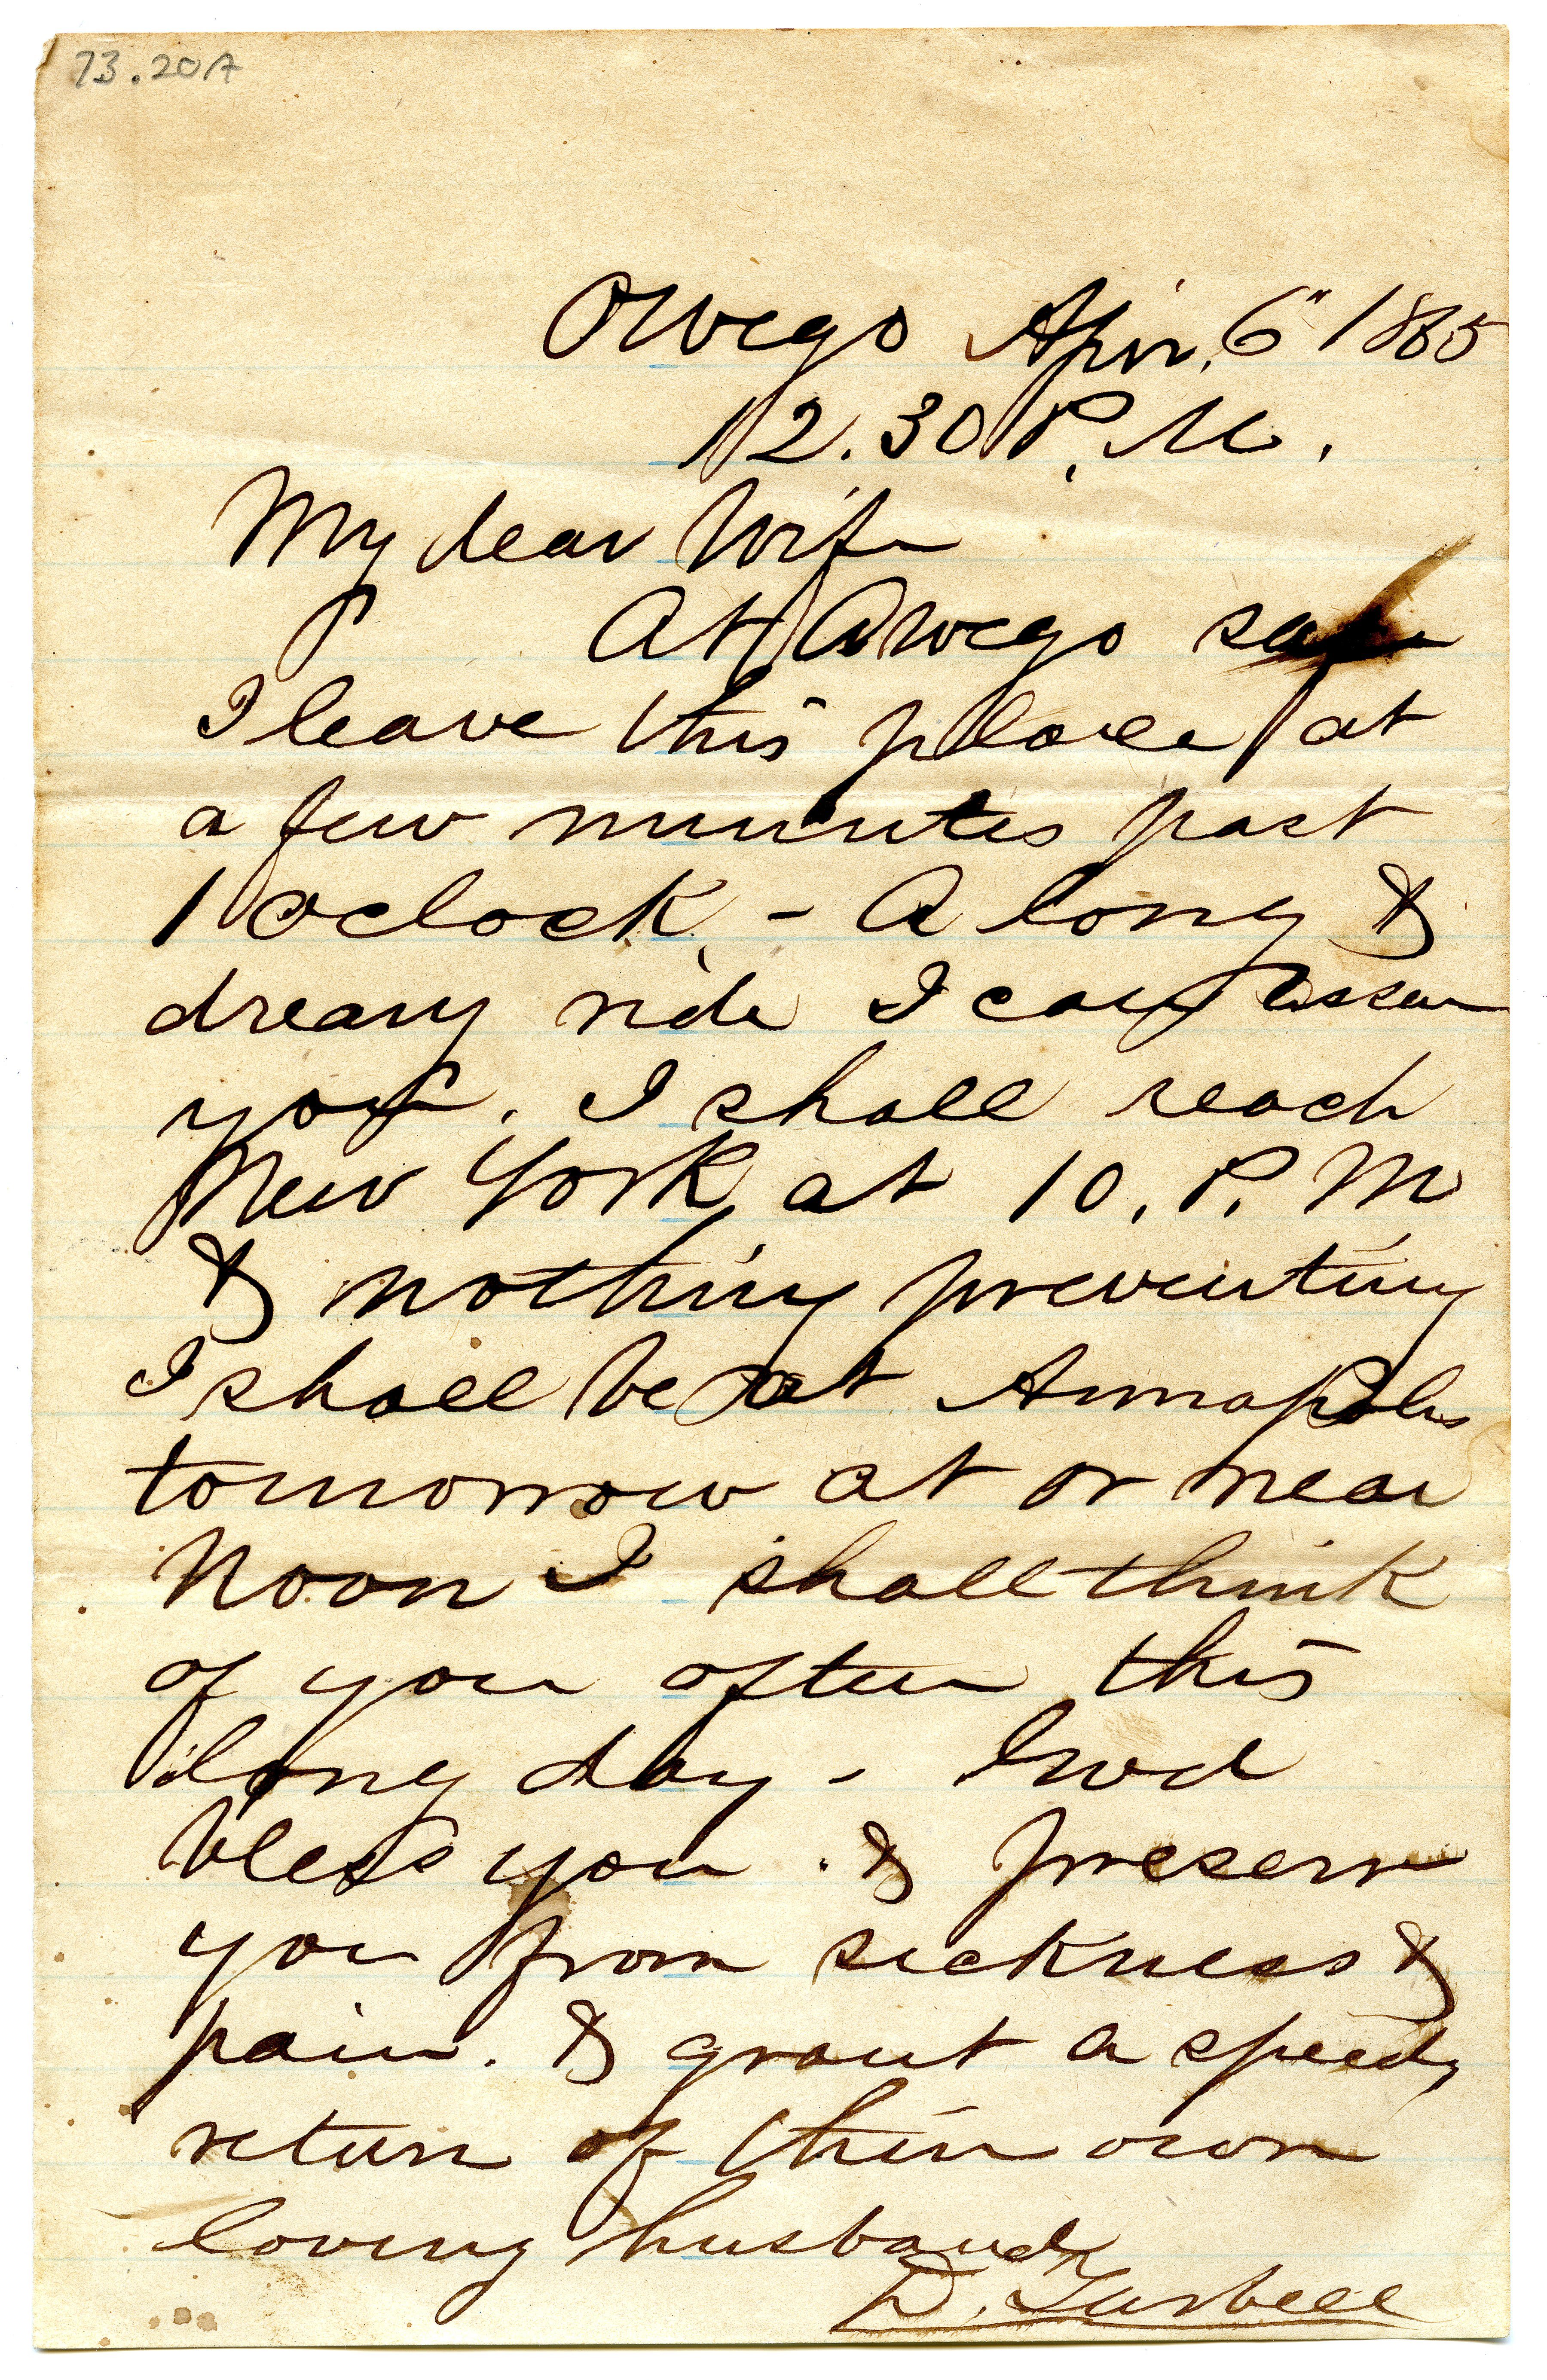 73.20A
Owego Apr. 6" 1865
12.30 P. M.
My dear Wife
At Owego safe
I leave this place at
a few minutes past
1 oclock, - A long &
dreary ride I can assure
you. I shall reach
New York at 10. P. M
& nothing preventing
I shall be at Annapolis
tomorrow at or near
Noon I shall think
of you often this
long day - God
bless you . & preserve
you from sickness &
pain. & grant a speedy
return of thine own
loving husband
D. Tarbell